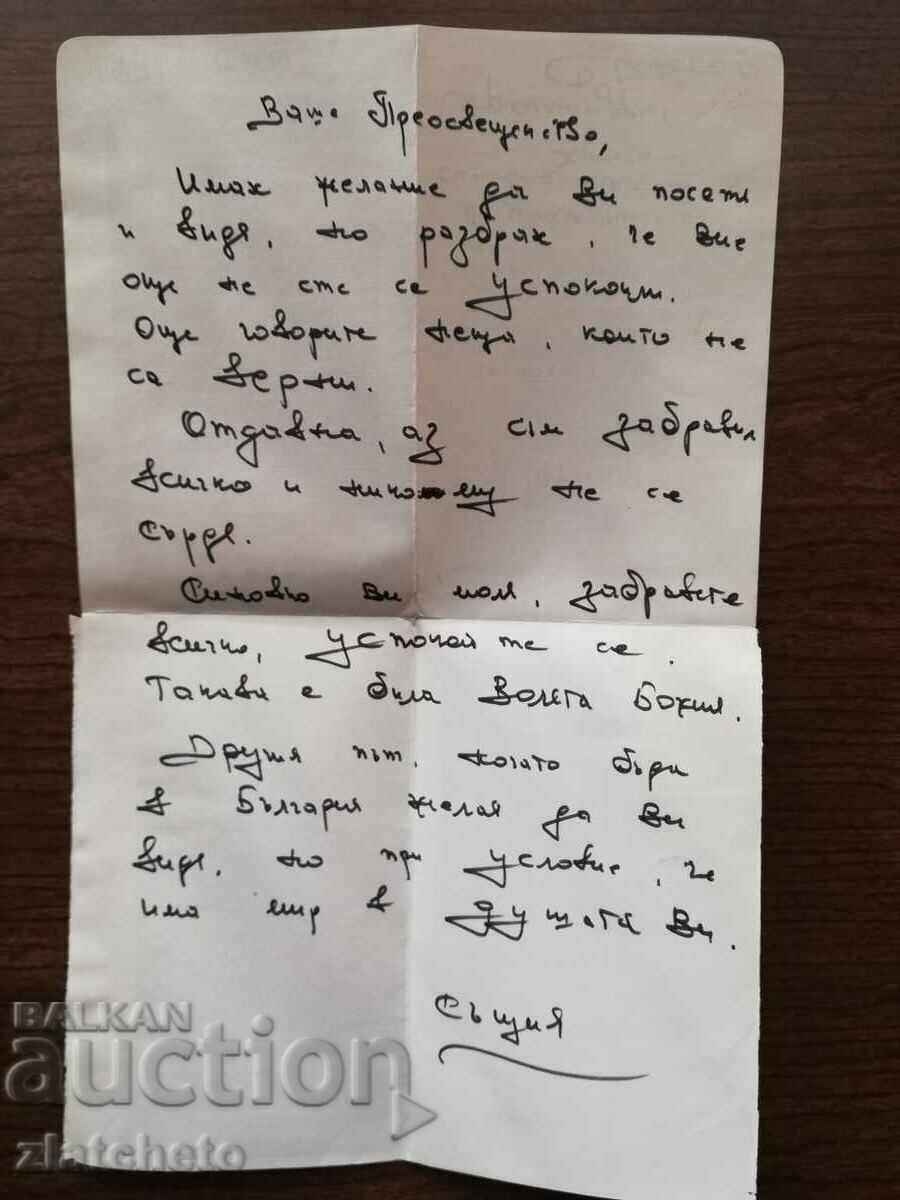 Ваше Преосвещенство,
Имах желание да Ви посетя
и видя, но разбрах, че Вие
още не сте се успокоили.
Още говорите неща, които не
са верни.
Отдавна, аз съм забравил
всичко и никому не се
сърдя.
Синовно Ви моля, забравете
всичко, успокойте се.
Такава е била Волята Божия.
Другия път, когато бъда
в България желая да Ви
видя, но при условие, че
има мир в душата Ви.
Същия
BALKAN
auction
zlatcheto